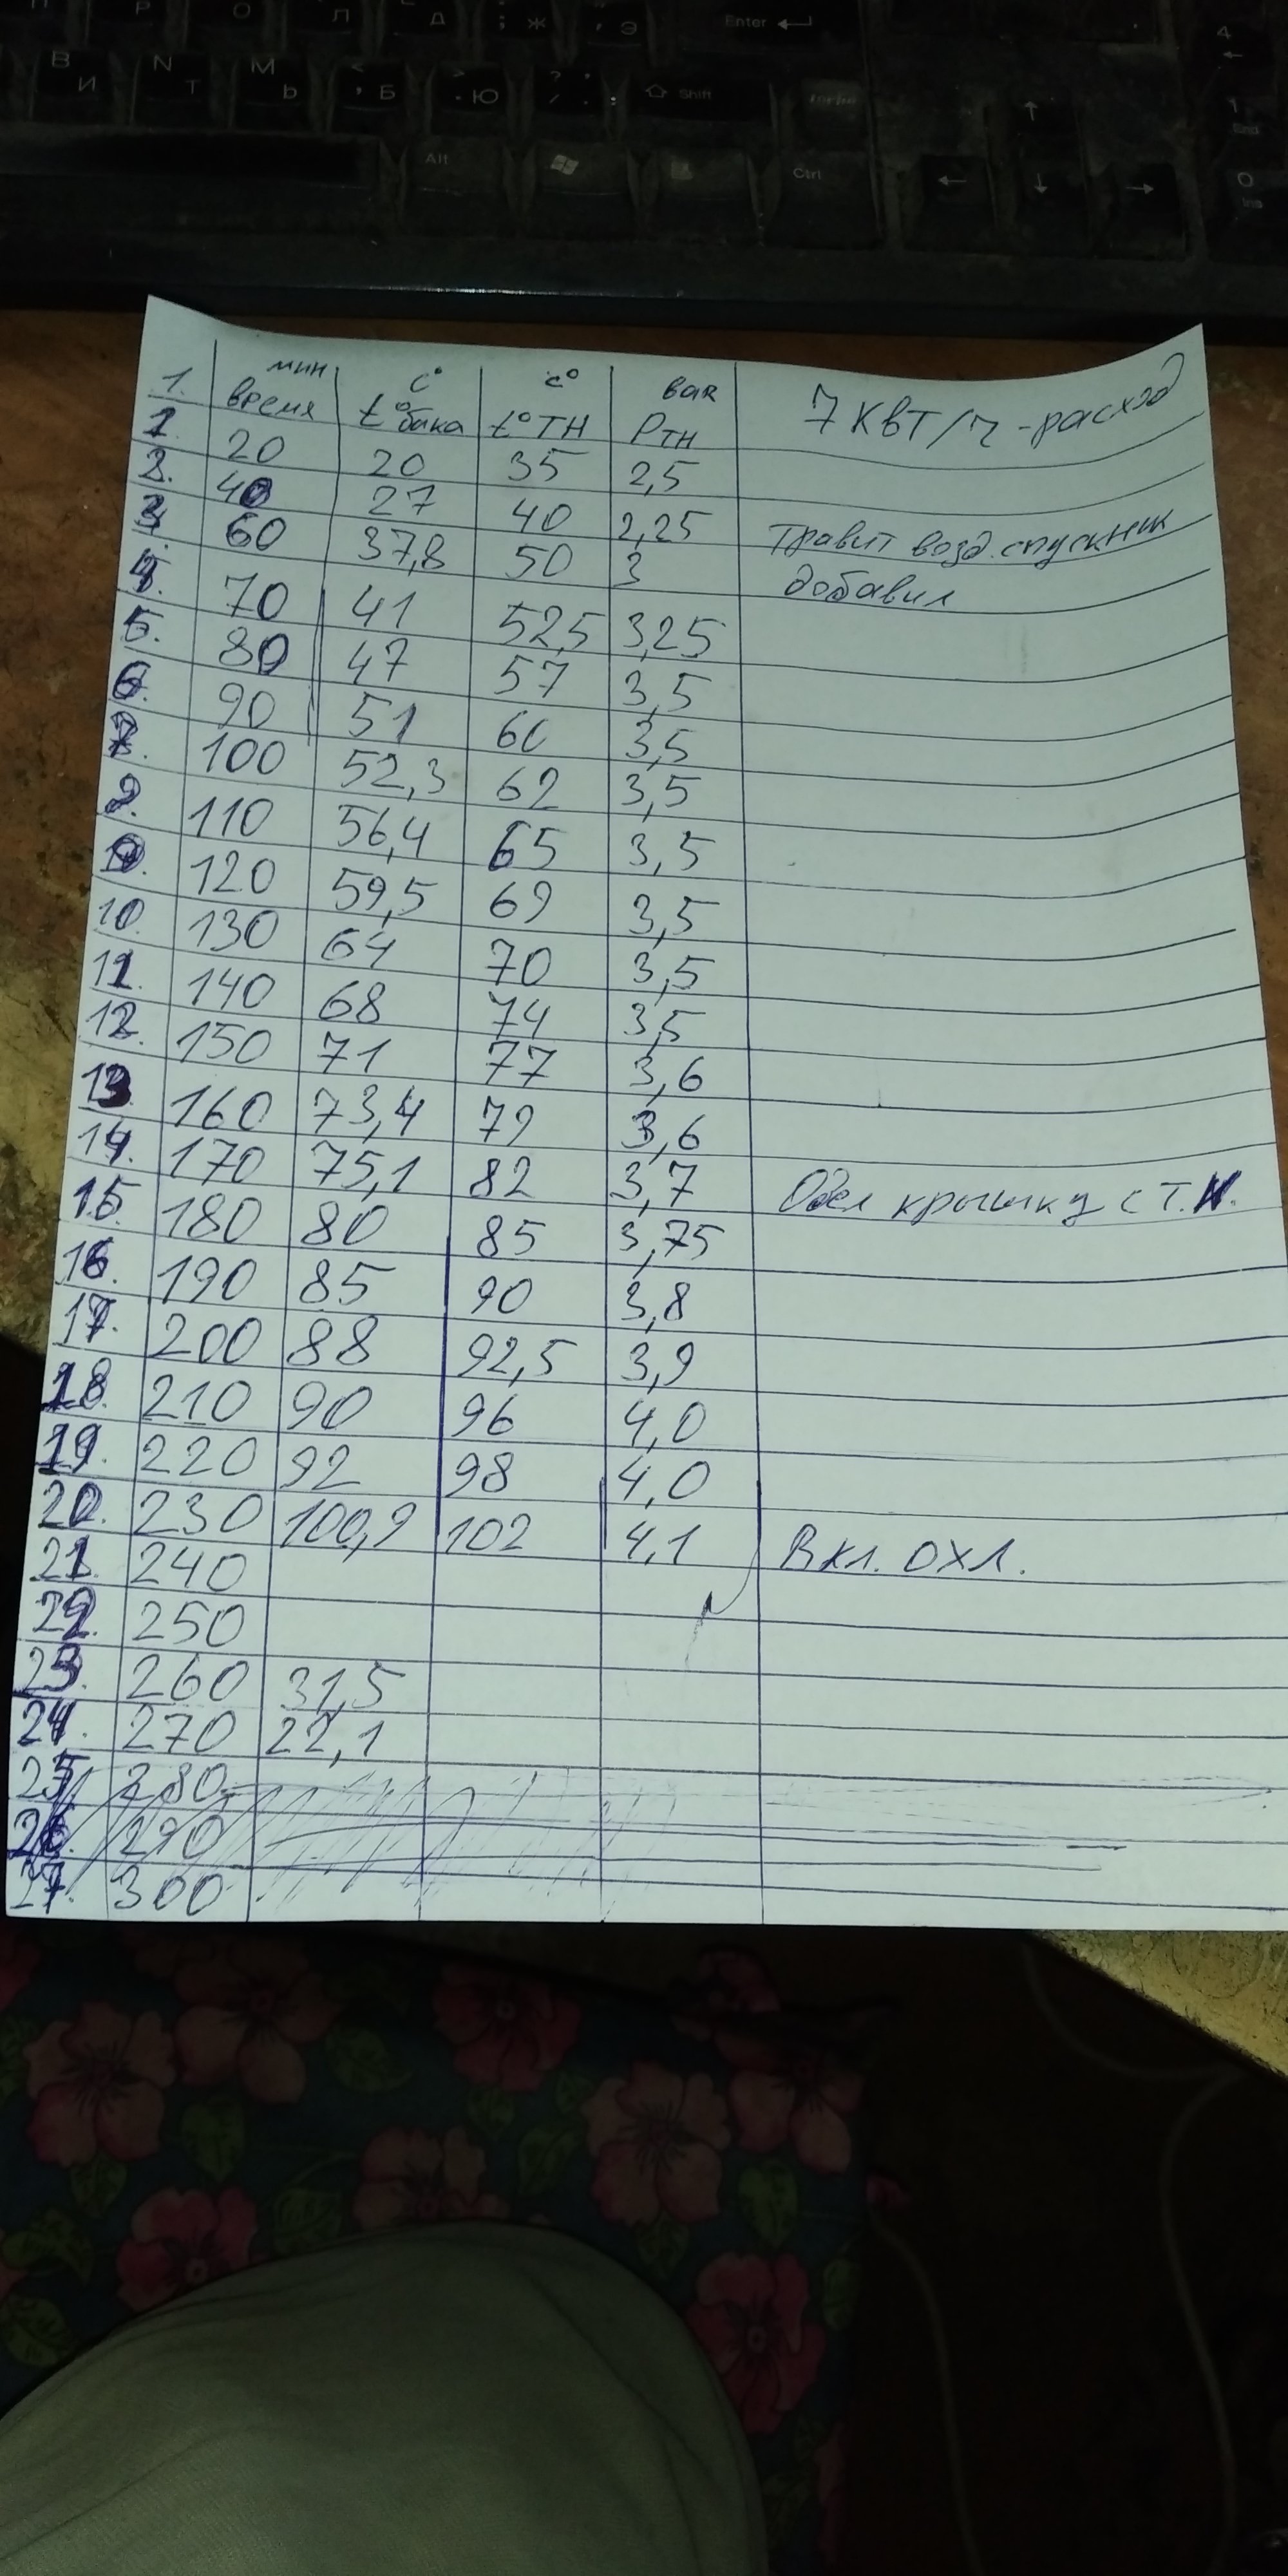 П Р О Л Д ; Ж " Э Enter 4
В И N Т М Ь < , Б > . Ю ? / . Shift 1 End
Alt Ctrl 0 Ins
1. мин время c° t° бака c° t° ТН bar Pтн 7 квт/ч - расход
1. 20 20 35 2,5
2. 40 27 40 2,25 травит возд. спускник
3. 60 37,8 50 3 добавил
4. 70 41 52,5 3,25
5. 80 47 57 3,5
6. 90 51 60 3,5
7. 100 52,3 62 3,5
8. 110 56,4 65 3,5
9. 120 59,5 69 3,5
10. 130 64 70 3,5
11. 140 68 74 3,5
12. 150 71 77 3,6
13. 160 73,4 79 3,6
14. 170 75,1 82 3,7 Одел крышку с т.н.
15. 180 80 85 3,75
16. 190 85 90 3,8
17. 200 88 92,5 3,9
18. 210 90 96 4,0
19. 220 92 98 4,0
20. 230 100,9 102 4,1 Вкл. охл.
21. 240
22. 250
23. 260 31,5
24. 270 22,1
25. 280
26. 290
27. 300